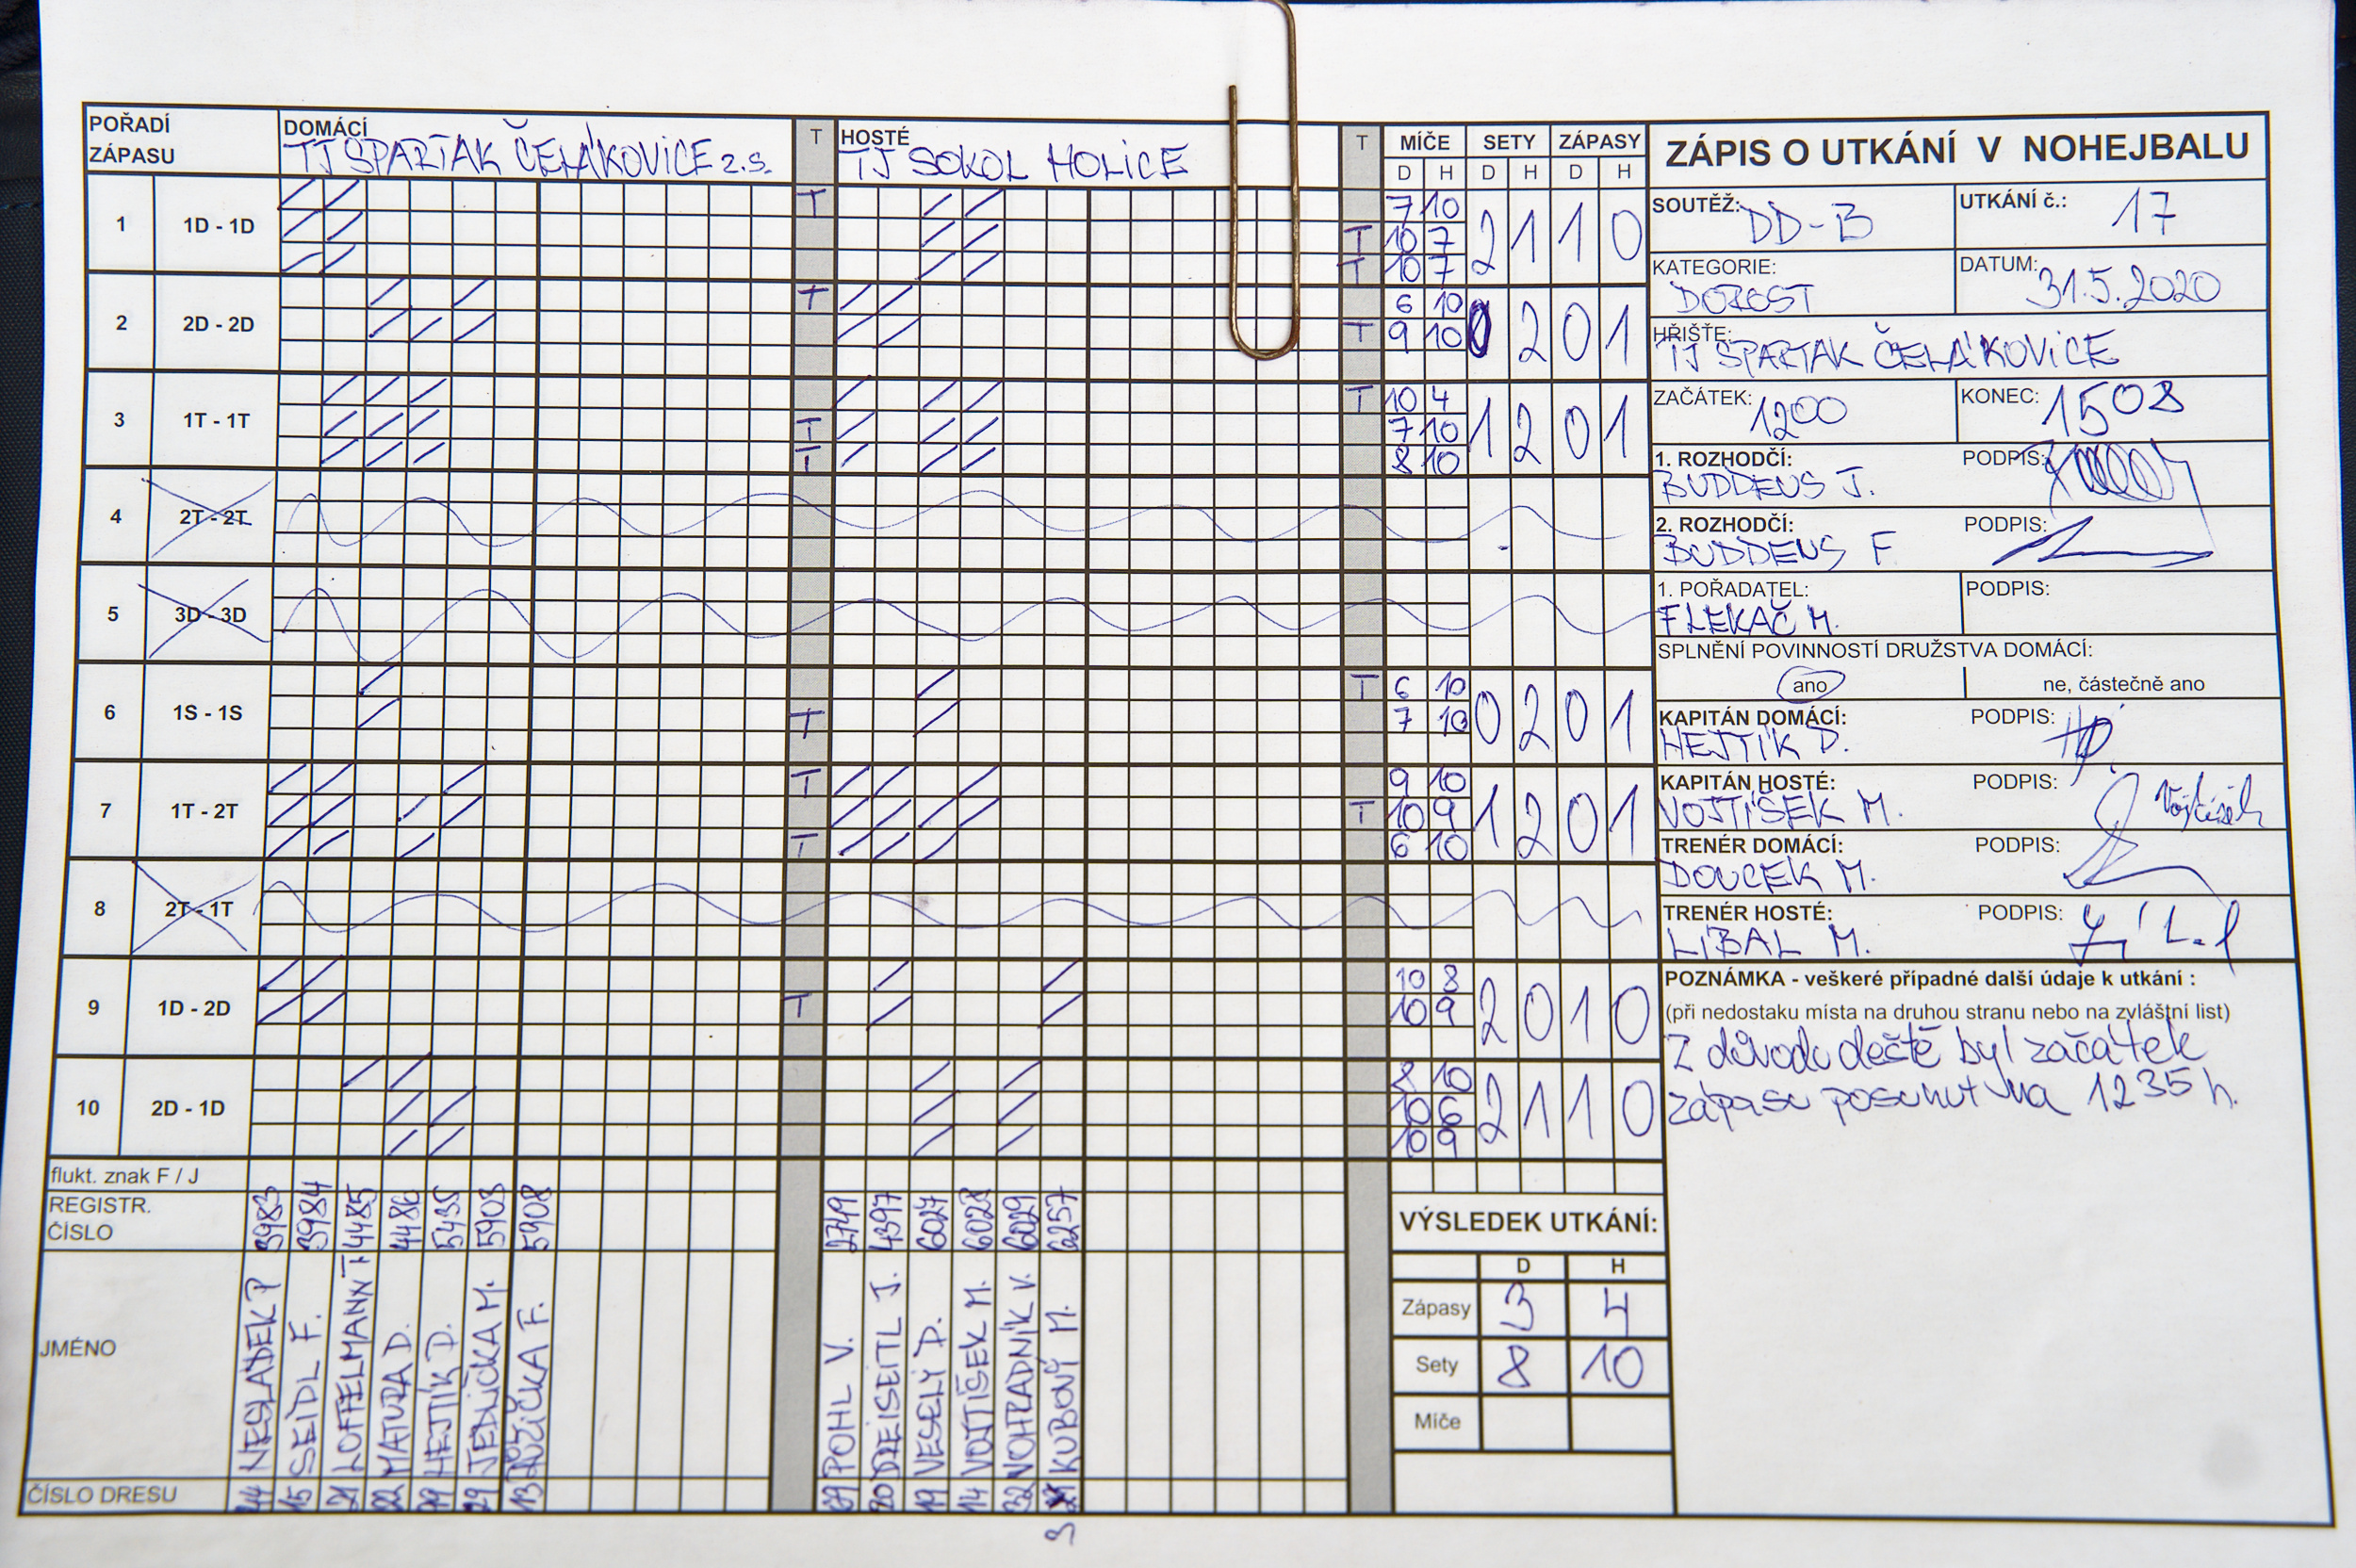 POŘADÍ ZÁPASU
DOMÁCÍ
TJ SPARTAK ČELÁKOVICE z.s.
T
HOSTÉ
TJ SOKOL HOLICE
T
MÍČE SETY ZÁPASY
D H D H D H
1 1D - 1D T 7 10 2 1 1 0
T 10 7
T 10 7
2 2D - 2D T 6 10 0 2 0 1
T 9 10
3 1T - 1T T 10 4 1 2 0 1
T 7 10
T 8 10
4 2T - 2T
5 3D - 3D
6 1S - 1S T 6 10 0 2 0 1
T 7 10
7 1T - 2T T 9 10 1 2 0 1
T 10 9
T 6 10
8 2T - 1T
9 1D - 2D 10 8 2 0 1 0
T 10 9
10 2D - 1D 8 10 2 1 1 0
10 6
10 9
flukt. znak F / J
REGISTR. ČÍSLO
3983 3984 4485 4486 5435 5903 5908
2749 4397 6027 6028 6029 6257
JMÉNO
NESLÁDEK P
SEIDL F.
LOFFELMANN T.
MATURA D.
HEJTÍK D.
JEDLIČKA M.
RŮŽIČKA F.
POHL V.
DREISEITL J.
VESELÝ D.
VOJTÍŠEK M.
NOHRADNÍK V.
KUBOVÝ M.
ČÍSLO DRESU
15 21 22 29 13
20 19 14 32
3
VÝSLEDEK UTKÁNÍ:
D H
Zápasy 3 4
Sety 8 10
Míče
ZÁPIS O UTKÁNÍ V NOHEJBALU
SOUTĚŽ: DD-B
UTKÁNÍ č.: 17
KATEGORIE: DOROST
DATUM: 31.5.2020
HŘIŠTĚ:
TJ SPARTAK ČELÁKOVICE
ZAČÁTEK: 1200
KONEC: 1508
1. ROZHODČÍ: PODPIS:
BUDDEUS J.
2. ROZHODČÍ: PODPIS:
BUDDEUS F.
1. POŘADATEL: PODPIS:
FLEKAČ M.
SPLNĚNÍ POVINNOSTÍ DRUŽSTVA DOMÁCÍ:
ano ne, částečně ano
KAPITÁN DOMÁCÍ: PODPIS:
HEJTÍK D.
KAPITÁN HOSTÉ: PODPIS:
VOJTÍŠEK M. Vojtíšek
TRENÉR DOMÁCÍ: PODPIS:
DOUCEK M.
TRENÉR HOSTÉ: PODPIS:
LÍBAL M.
POZNÁMKA - veškeré případné další údaje k utkání :
(při nedostaku místa na druhou stranu nebo na zvláštní list)
Z důvodu deště byl začátek
zápasu posunut na 1235 h.